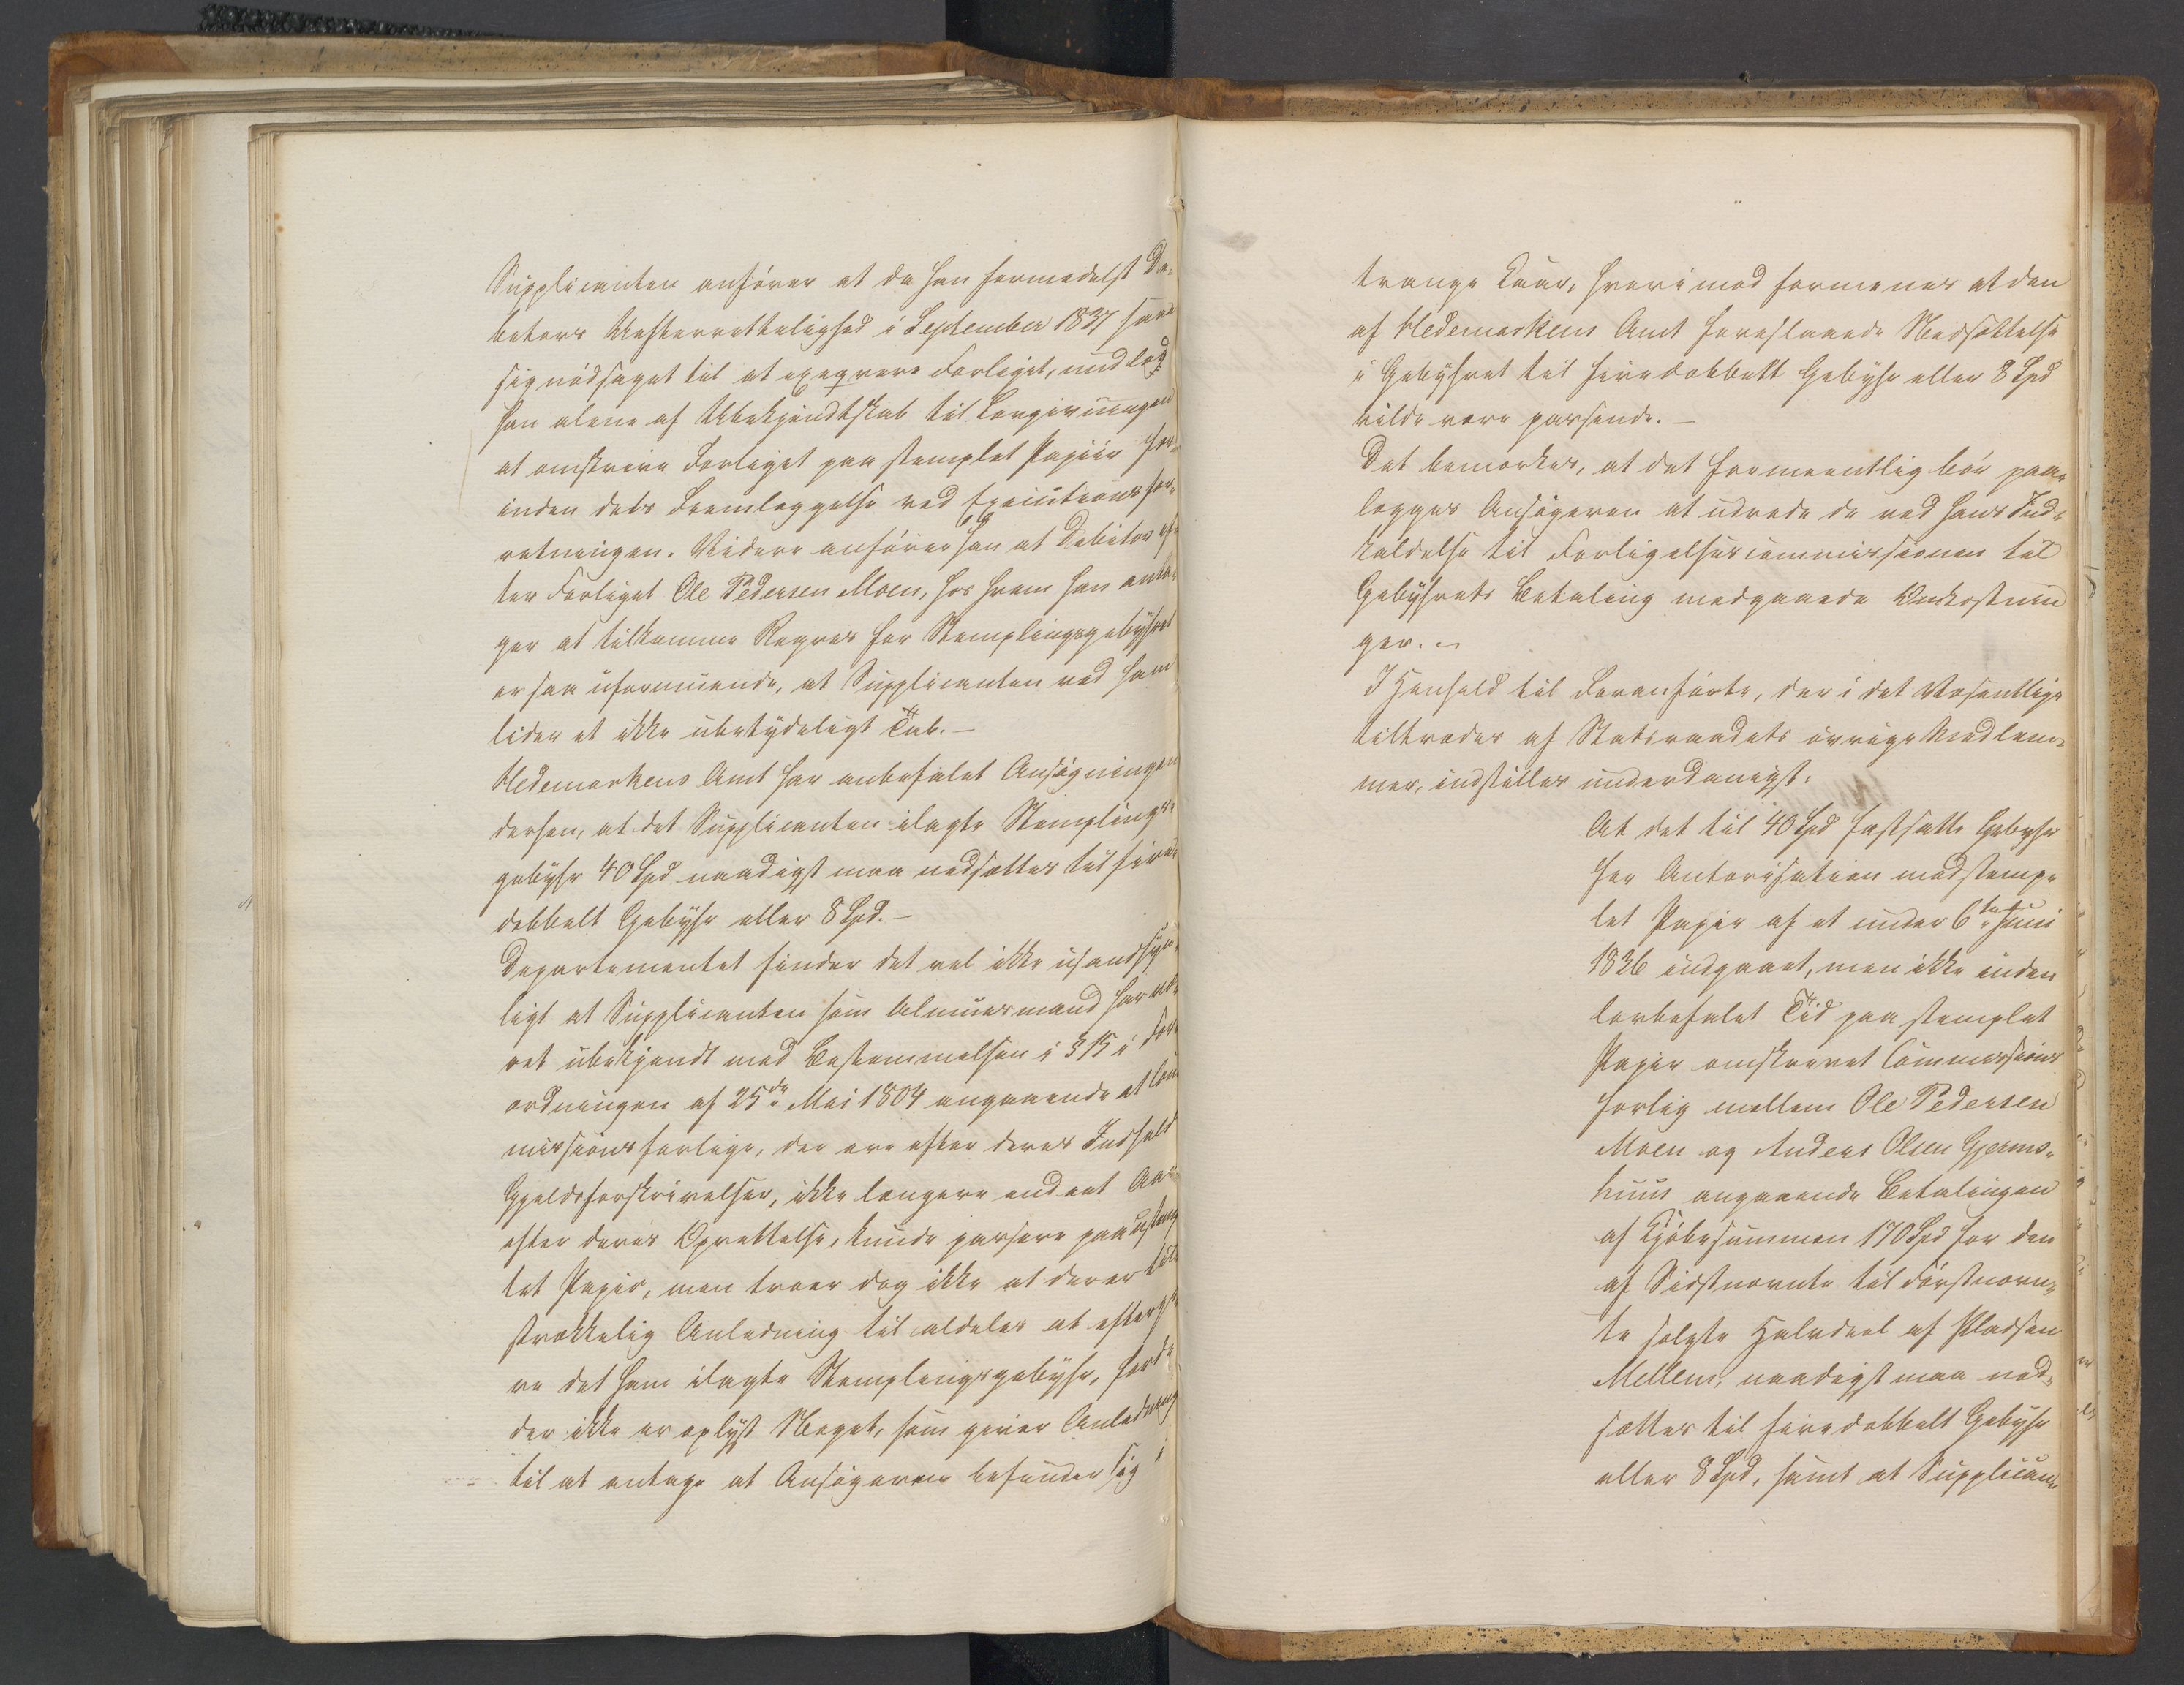 Supplicanten anfører at da han formedelst De-
bitors Uefterrettelighed i September 1837 saae
sig nødsaget til at exeqvere Forliget, undlod
han alene af Ubekjendtskab til Lovgivningen
at omskrive Forliget paa stemplet Papiir for-
inden dets Fremlæggelse ved Executionsfor-
retningen. Videre anfører han at Debitor ef-
ter Forliget Ole Pedersen Moen, hos hvem han anta-
ger at tilkomme Regres for Stemplingsgebyhret
er saa uformuende, at Supplicanten ved ham
lider et ikke ubetydeligt Tab. —
Hedemarkens Amt har anbefalet Ansøgningen
derhen, at det Supplicanten ilagte Stemplings-
gebyhr 40 Spd naadigst maa nedsættes til fire-
dobbelt Gebyhr eller 8 Spd. —
Departementet finder det vel ikke usandsyn-
ligt at Supplicanten som Almuesmand har væ-
ret ubekjendt med Bestemmelsen i § 15 i For-
ordningen af 25de Mai 1804 angaaende at Com-
missionsforlige, der ere efter deres Indhold
Gjeldsforskrivelser, ikke længere end eet Aar
efter deres Oprettelse, kunde passere paa ustemp-
let Papir, men troer dog ikke at der er til-
strækkelig Anledning til aldeles at eftergi-
ve det ham ilagte Stemplingsgebyhr, fordi
der ikke er oplyst Noget, som giver Anledning
til at antage at Ansøgeren befinder sig i
trange Kaar, hvorimod formenes at den
af Hedemarkens Amt foreslaaede Nedsættelse
i Gebyhret til firedobbelt Gebyhr eller 8 Spd
vilde være passende. —
Det bemærkes, at det formeentlig bør paa-
lægges Ansøgeren at udrede de ved hans Ind-
kaldelse til Forligelsescommissionen til
Gebyhrets Betaling medgaaede Omkostnin
ger. —
I Henhold til Foranførte, der i det Væsentlige
tiltrædes af Statsraadets øvrige Medlem-
mer, indstilles underdanigst:
At det til 40 Spd fastsatte Gebyhr
for Autorisation med stemp-
let Papir af et under 6te Juni
1836 indgaaet, men ikke inden
lovbefalet Tid paa stemplet
Papir omskrevet Commissions
forlig mellem Ole Pedersen
Moen og Anders Olsen Gjerms-
huus angaaende Betalingen
af Kjøbesummen 170 Spd for den
af Sidstnævnte til Førstnævn-
te solgte Halvdeel af Pladsen
Mellem, naadigst maa ned-
sættes til firedobbelt Gebyhr
eller 8 Spd, samt at Supplican-